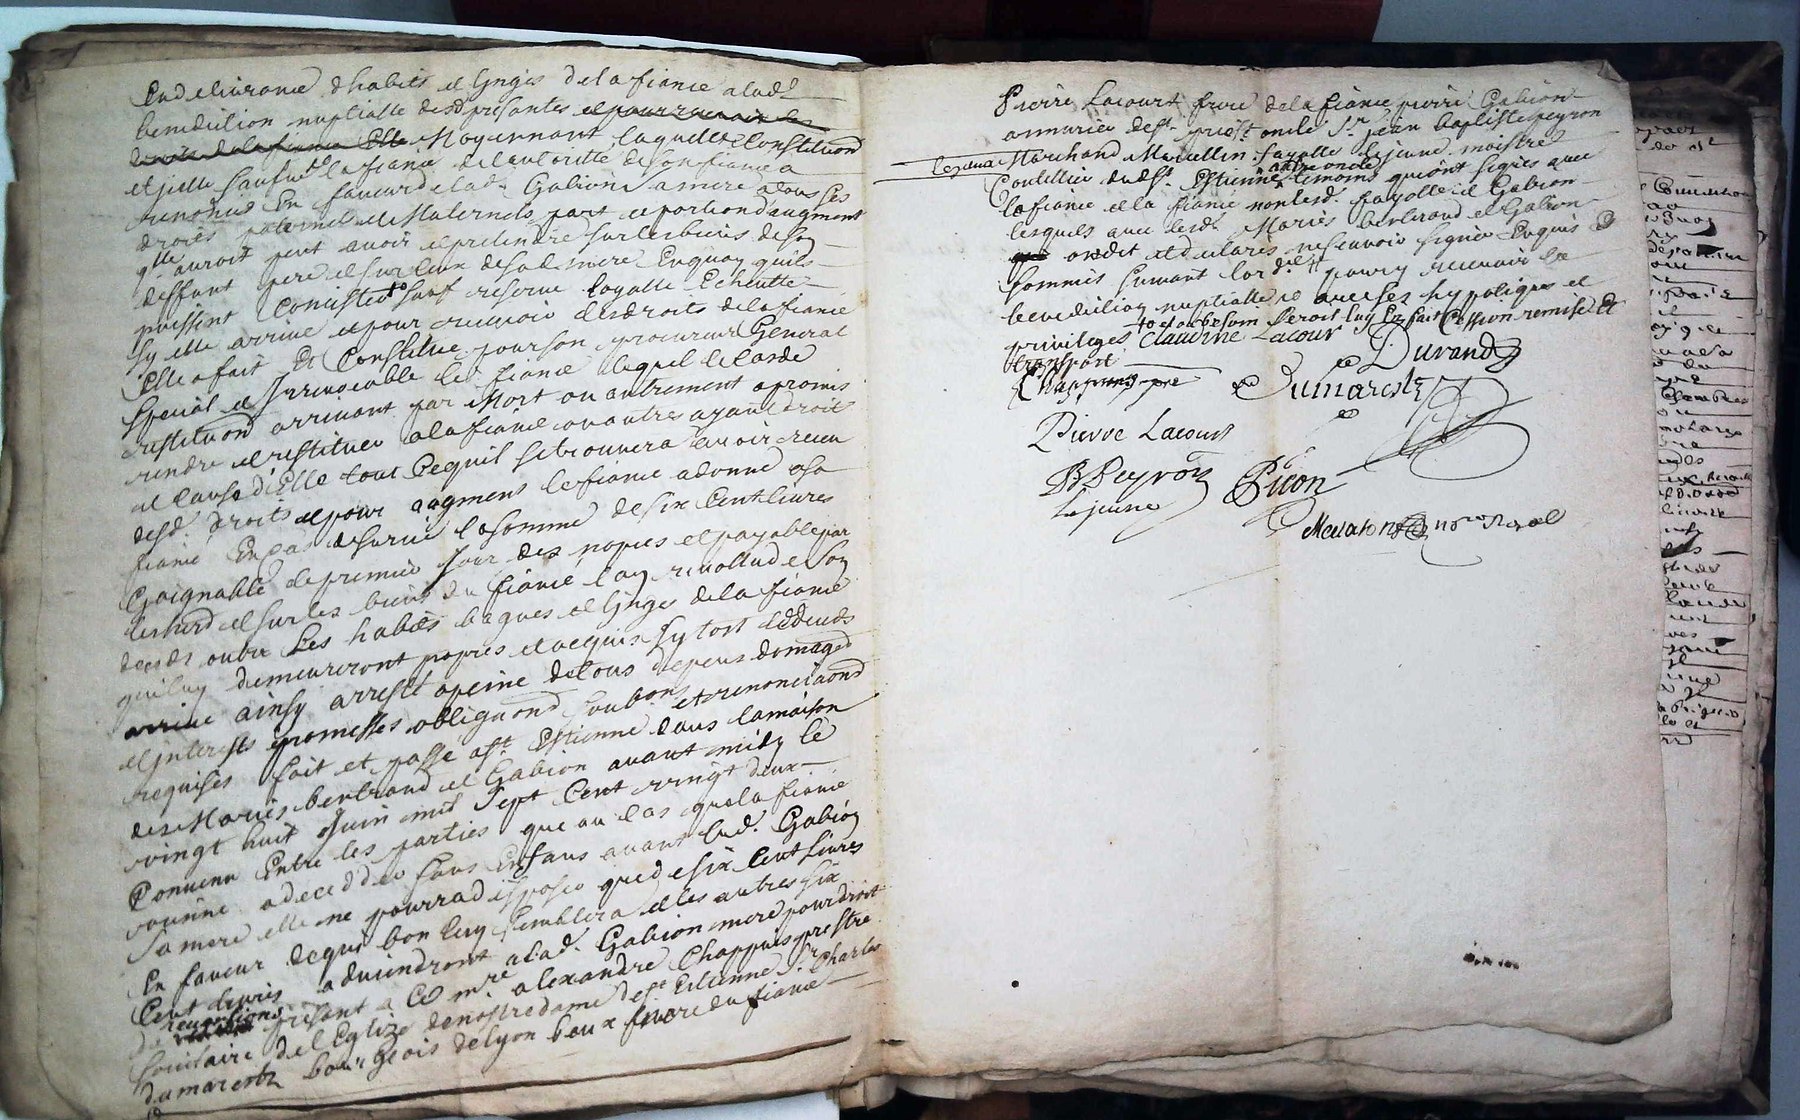 En delivrance d'habits et linges de la fiance a lad.
benediction nuptialle desd presantes et pour
Moyennant laquelle Constitu[ti]on
la fiance de l'autoritte de son fiance a
renoncé En faveur de lad. Gabion sa mere a tous ses
droits paternels et Maternels part et portion d'augment
qlle auroit peut avoir et pretendre sur les biens de son
deffunt pere et sur ceux de sad. mere En quoy qu'ils
puissent Consister sauf reserve loyalle Echeutte
sy elle arrive et pour recevoir lesd droits de la fiance
Elle a fait Et Constitue pour son procureur General
special et Irrevocable led fiance lequel le Cas de
restitution arrivant par Mort ou autrement a promis
rendre et restituer a la fiance ou autres ayant droit
et Cause d'Elle tout Ce quil se trouvera avoir receu
desd. droits et pour augment le fiance a donne a sa
fiance En cas de survie la somme de six Cent livres
Gaignable le premier jour des nopces et payable par
sur les biens du fiance
deceds outre Les habits bagues et linges de la fiance
qui luy demeureront propres et acquis sy tost led deceds
arrive ainsy arresté a peine de tous depens domages
et interests promesses obligations soubmons et renonciaons
requises fait et passé a St. Estienne dans la maison
des Mariés bertrand et Gabion avant midy le
vingt huit Juin mil Sept Cent vingt deux
Convenu Entre les parties que au Cas que la fiance
vienne a deceder sans Enfans avant lad. Gabion
sa mere elle ne pourra disposer que de six Cent Livres
En faveur de qui bon luy semblera et les autres six
Cent livres adviendront a lad. Gabion mere pour droit
de reversions present a Ce mre alexandre Chappuis prestre
socitaire de l'Eglize de nostre dame de St Estienne Sr. Charles
dumarestz bourgeois de Lyon beau frere du fiance
Pierre Lacourt frere de la fiance pierre Gabion
armurier de St. priest oncle Sr. jean baptiste peyron
Marchand Marcellin fayolle Lejeune maistre
Coutellier dud St. Estienne temoins qui ont signés avec
le fiance et la fiance non led. fayolle et Gabion
lesquels avec lesd. Mariés bertrand et Gabion
ont dit et declarés ne scavoir signer Enquis &
sommés suivant l'ord. pour recevoir la
benediction nuptialle avec ses hypoteques et
privileges Claudine Lacour
et au besoin seroit luy En fait Cession remise Et
transport
Durand
Chappuis pre
Dumarestz
Pierre Lacourt
B Peyron
Picon
Lejeune
nore Royal